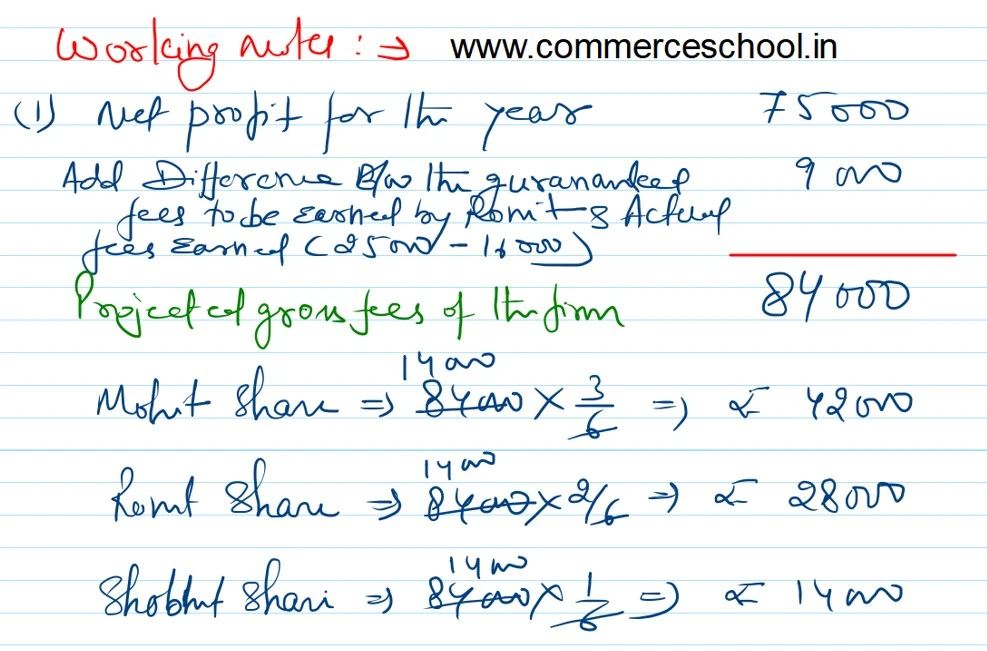 Working notes : ⇒ www.commerceschool.in
(1) Net profit for the year 75000
Add Difference B/w the guranandeed 9000
fees to be earned by Romit & Actual
fees Earned (25000 - 16000)
84000
Projected gross fees of the firm
14000
Mohit Share ⇒ 84000 × 3/6 ⇒ ₹ 42000
14000
Romit Share ⇒ 84000 × 2/6 ⇒ ₹ 28000
14000
Shobhit Share ⇒ 84000 × 1/6 ⇒ ₹ 14000